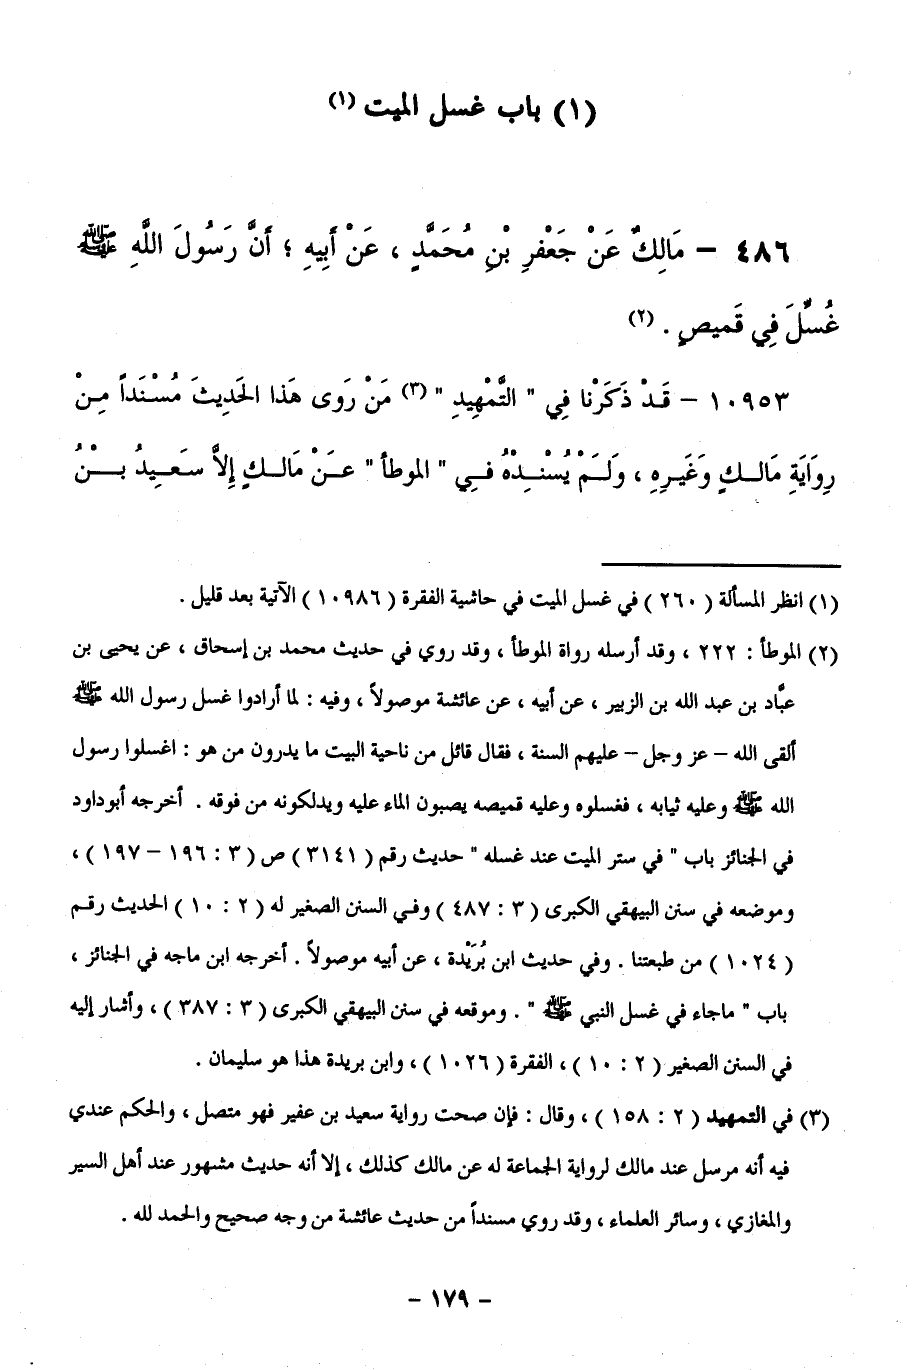 (١) باب غسل الميت (١)
٤٨٦ – مَالِكٌ عَنْ جَعْفرِ بْنِ مُحَمَّدٍ ، عَنْ أَبِيهِ ؛ أَنَّ رَسُولَ اللَّهِ ﷺ
غُسِّلَ فِي قَميصٍ . (٢)
١٠٩٥٣ – قَدْ ذَكَرْنَا فِي " التَّمْهِيدِ " (٣) مَنْ رَوَى هَذَا الحَدِيثَ مُسْنَداً مِنْ
رِوَايَةِ مَالِكٍ وَغَيرِهِ ، وَلَمْ يُسْنِدْهُ فِي " الموطأ " عَنْ مَالِكٍ إِلاَّ سَعِيدُ بْنُ
(١) انظر المسألة ( ٢٦٠ ) في غسل الميت في حاشية الفقرة ( ١٠٩٨٦ ) الآتية بعد قليل .
(٢) الموطأ : ٢٢٢ ، وقد أرسله رواة الموطأ ، وقد روي في حديث محمد بن إسحاق ، عن يحيى بن
عبَّاد بن عبد الله بن الزبير ، عن أبيه ، عن عائشة موصولاً ، وفيه : لما أرادوا غسل رسول الله ﷺ
ألقى الله – عز وجل – عليهم السنة ، فقال قائل من ناحية البيت ما يدرون من هو : اغسلوا رسول
الله ﷺ وعليه ثيابه ، فغسلوه وعليه قميصه يصبون الماء عليه ويدلكونه من فوقه . أخرجه أبوداود
في الجنائز باب " في ستر الميت عند غسله " حديث رقم ( ٣١٤١ ) ص ( ٣ : ١٩٦ – ١٩٧ ) ،
وموضعه في سنن البيهقي الكبرى ( ٣ : ٤٨٧ ) وفي السنن الصغير له ( ٢ : ١٠ ) الحديث رقم
( ١٠٢٤ ) من طبعتنا . وفي حديث ابن بُرَيْدة ، عن أبيه موصولاً . أخرجه ابن ماجه في الجنائز ،
باب " ماجاء في غسل النبي ﷺ " . وموقعه في سنن البيهقي الكبرى ( ٣ : ٣٨٧ ) ، وأشار إليه
في السنن الصغير ( ٢ : ١٠ ) ، الفقرة ( ١٠٢٦ ) ، وابن بريدة هذا هو سليمان .
(٣) في التمهيد ( ٢ : ١٥٨ ) ، وقال : فإن صحت رواية سعيد بن عفير فهو متصل ، والحكم عندي
فيه أنه مرسل عند مالك لرواية الجماعة له عن مالك كذلك ، إلا أنه حديث مشهور عند أهل السير
والمغازي ، وسائر العلماء ، وقد روي مسنداً من حديث عائشة من وجه صحيح والحمد لله .
– ١٧٩ –